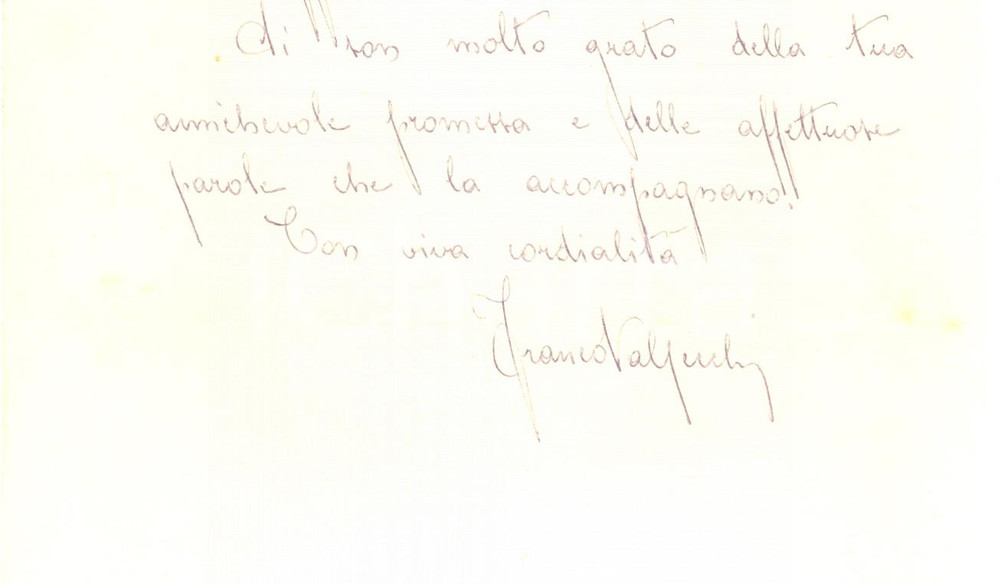 Ti son molto grato della tua
amichevole promessa e delle affettuose
parole che la accompagnano.
Con viva cordialità
Franco Valsecchi